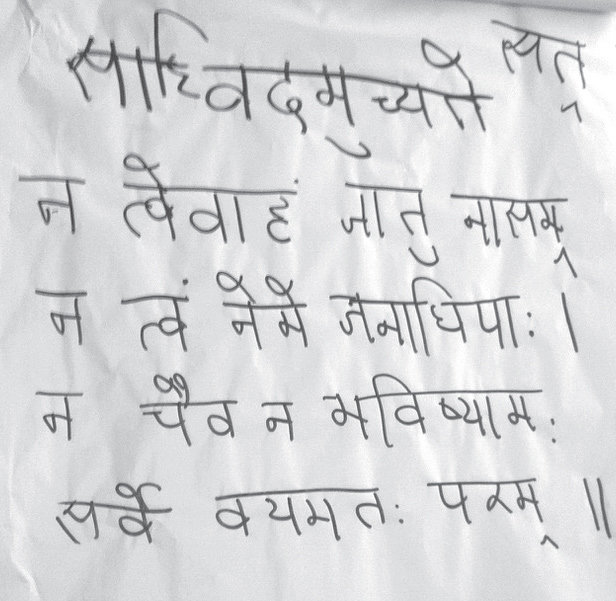 सत्
न त्वेवाहं जातु नासम्
न त्वं नेमे जनाधिपाः ।
न चैव न भविष्यामः
सर्वे वयमतः परम् ॥